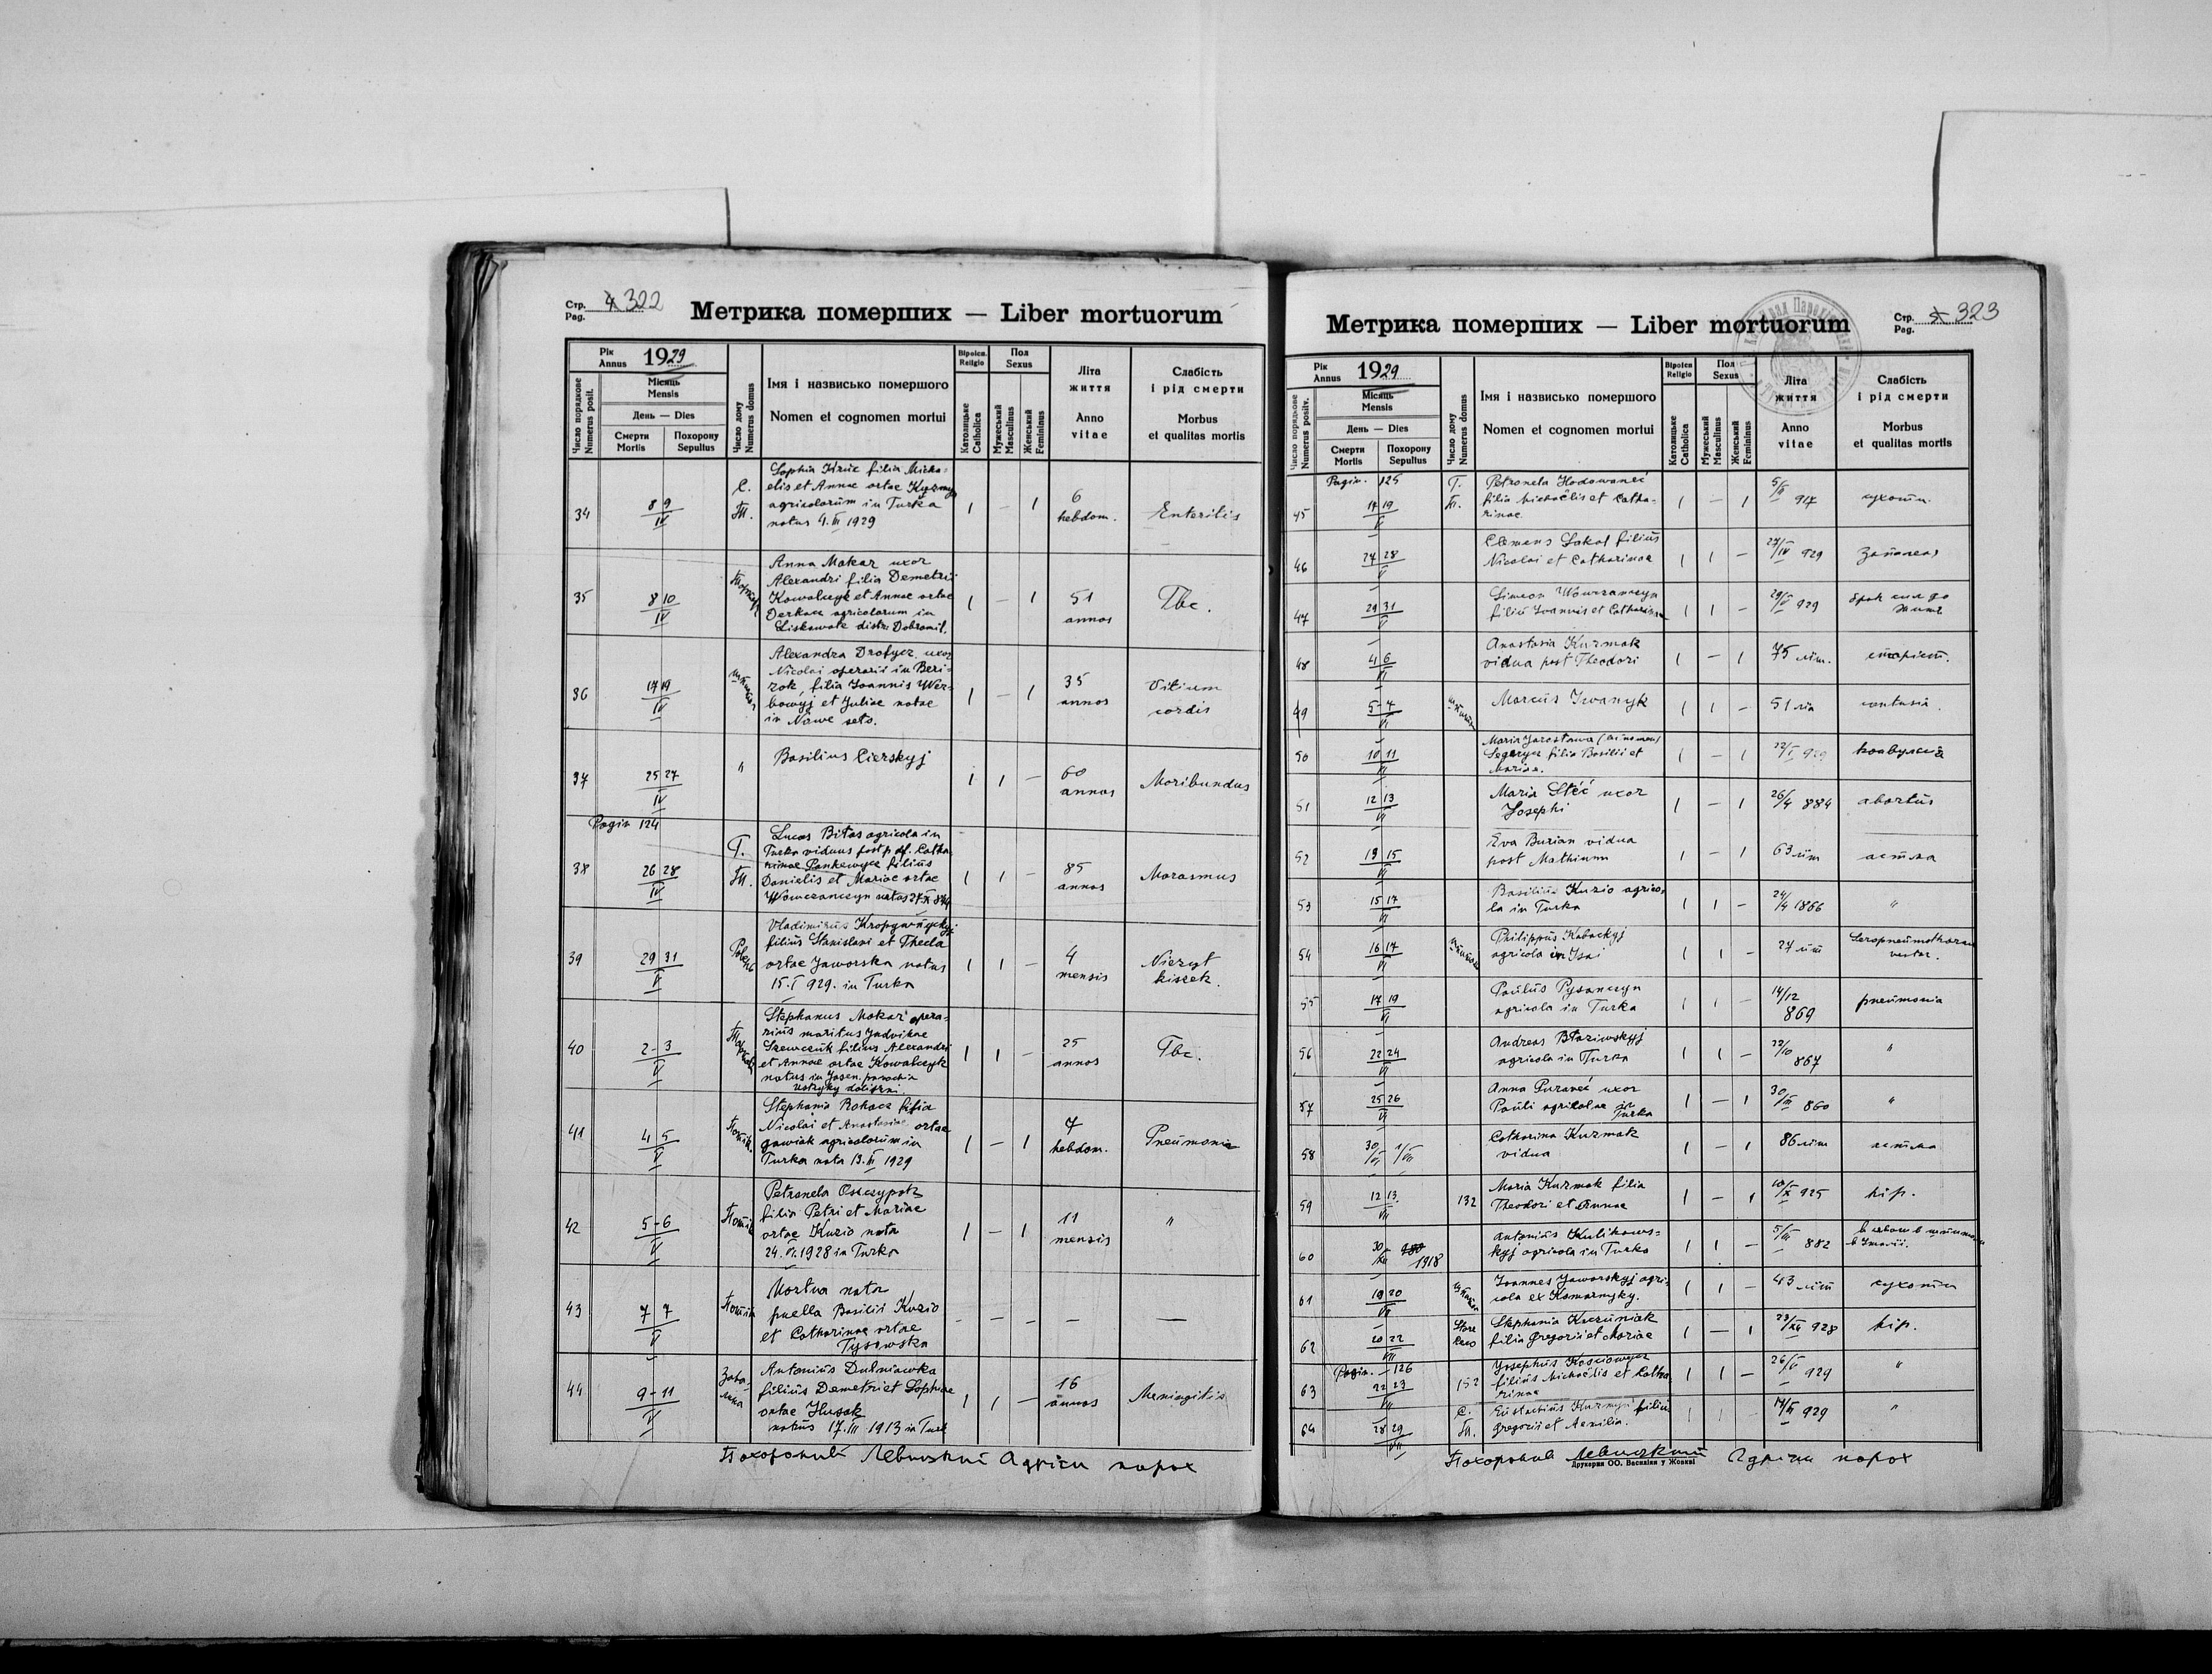 Стр.
Pag. 322
Метрика померших — Liber mortuorum
Рік
Annus 1929
Місяць
Mensis
День — Dies
Смерти
Mortis
Похорону
Sepultus
Число порядкове
Numerus posit.
Число дому
Numerus domus
Імя і назвисько помершого
Nomen et cognomen mortui
Віроісп.
Religio
Католицьке
Catholica
Пол
Sexus
Мужеський
Masculinus
Женський
Femininus
Літа
життя
Anno
vitae
Слабість
і рід смерти
Morbus
et qualitas mortis
34
8 9
IV
С.
Т.
Sophia filia Micha-
elis et Annae ortae
agricolorum in Turka
natus 4. III 1929
1 – 1
6
hebdom.
Enteritis
35
8 10
IV
Anna Makar uxor
Alexandri filia Demetrii
Kowalczyk et Annae ortae
Derkacz agricolarum in
Liskowate distr. Dobromil.
1 – 1
51
annos
Tbc.
36
17 19
IV
Alexandra Drofycz uxor
Nicolai operarii in Beri-
zok, filia Joannis Wer-
bowyj et Juliae natae
in Nowe seto.
1 – 1
35
annos
Vitium
cordis
37
25 27
IV
"
Basilius Cierskyj
1 1 –
60
annos
Moribundus
Pagin 124
38
26 28
IV
Г.
Т.
Lucas Bitas agricola in
Turka viduus post p. df. Catha-
rinae Pankewycz filius
Danielis et Mariae ortae
Wowczanczyn natus 27 X 844
1 1 –
85
annos
Marasmus
39
29 31
V
Vladimirus Kropywnyckyj
filius Stanislavi et Thecla
ortae Jaworska natus
15. I 929. in Turka
1 1 –
4
mensis
Niezyt
kiszek.
40
2 – 3
V
Stephanus Makar opera-
rius maritus Jadvikae
Szewczuk filius Alexandri
et Annae ortae Kowalczyk
natus in Jasen parochia
Ustryky doliszni.
1 1 –
25
annos
Tbc.
41
4 5
V
Stephania Rohacz filia
Nicolai et Anastasiae ortae
gawiak agricolorum in
Turka nata 13. III 1929
1 – 1
7
hebdom.
Pneumonia
42
5 – 6
V
Petronela Oszczypok
filia Petri et Mariae
ortae Kuzio nata
24. VI. 1928 in Turka
1 – 1
11
mensis
"
43
7 7
V
Mortua nata
puella Basilii Kuzio
et Catharinae ortae
Tysowska
– – – — —
44
9 – 11
V
Antonius Dubniawka
filius Demetri et Sophiae
ortae Husak
natus 17. III 1913 in Turk
1 1 –
16
annos
Meningitis
Похоронив Левицкий Адріян парох
Стр.
Pag. 323
Метрика померших — Liber mortuorum
Рік
Annus 1929
Місяць
Mensis
День — Dies
Смерти
Mortis
Похорону
Sepultus
Число порядкове
Numerus positv.
Число дому
Numerus domus
Імя і назвисько помершого
Nomen et cognomen mortui
Віроісп
Religio
Католицьке
Catholica
Пол
Sexus
Мужеський
Masculinus
Женський
Femininus
Літа
життя
Anno
vitae
Слабість
і рід смерти
Morbus
et qualitas mortis
Pagin. 125
45
17 19
V
Г.
Т.
Petronela Hodowaneć
filia Michaëlis et Catha-
rinae
1 – 1
917
сухоти.
46
27 28
V
Clemens Sokol filius
Nicolai et Catharinae
1 1 –
27/IV 929
47
29 31
V
Simeon Wowczanczyn
filius Joannis et Catharinae
1 1 –
29/V 929
брак сил до
життя
48
4 6
VI
Anastasia Kuzmak
vidua post Theodori
1 – 1
75 літ.
старіст.
49
5 – 7
VI
Marcus Iwanyk
1 1 –
51 літ
contusia.
50
10 11
VI
Maria Jarostawa
filia Basilii et
Mariae.
1 – 1
22/I 929
конвулсия
51
12 13
VI
Maria Steć uxor
Josephi
1 – 1
26/4 884
abortus
52
13 15
VI
Eva Burian vidua
post Mathiam
1 – 1
63 літ
астма
53
15 17
VI
Basilius Kuzio agrico-
la in Turka
1 1 –
24/4 1866
"
54
16 17
VI
Philippus Kabackyj
agricola in Isai
1 1 –
27 літ
55
17 19
VI
Paulus Pysanczyn
agricola in Turka
1 1 –
14/12
869
pneumonia
56
22 24
VI
Andreas Btaziwskyj
agricola in Turka
1 1 –
22/10
867
"
57
25 26
VI
Anna Puraneć uxor
Pauli agricolae in
Turka
1 – 1
30/III 860
"
58
30/VI 1/VII
Catharina Kuzmak
vidua
1 – 1
86 літ
астма
59
12 13.
VII
132
Maria Kuzmak filia
Theodori et Annae
1 – 1
10/X 925
кір.
60
30/XII 1918
Antonius Kulikows-
kyj agricola in Turka
1 1 –
5/III 882
61
19 20
VII
Joannes Jaworskyj agri-
cola ex Komarnyky.
1 1 –
43 літ
сухоти
62
20 22
VII
Stephania Kuczuniak
filia Gregorii et Mariae
1 — 1
23/XII 928
кір.
Pagin. – 126
63
22 23
VII
152
Josephus Kosciowycz
filius Michaëlis et Catha-
rinae
1 1 –
929
"
64
28 29
VII
С.
Т.
Eustachius Kuzmycz filius
Gregorii et Aemilia.
1 1 –
929
"
Похоронив Левицкий Адріян парох
Друкарня ОО. Василіян у Жовкві